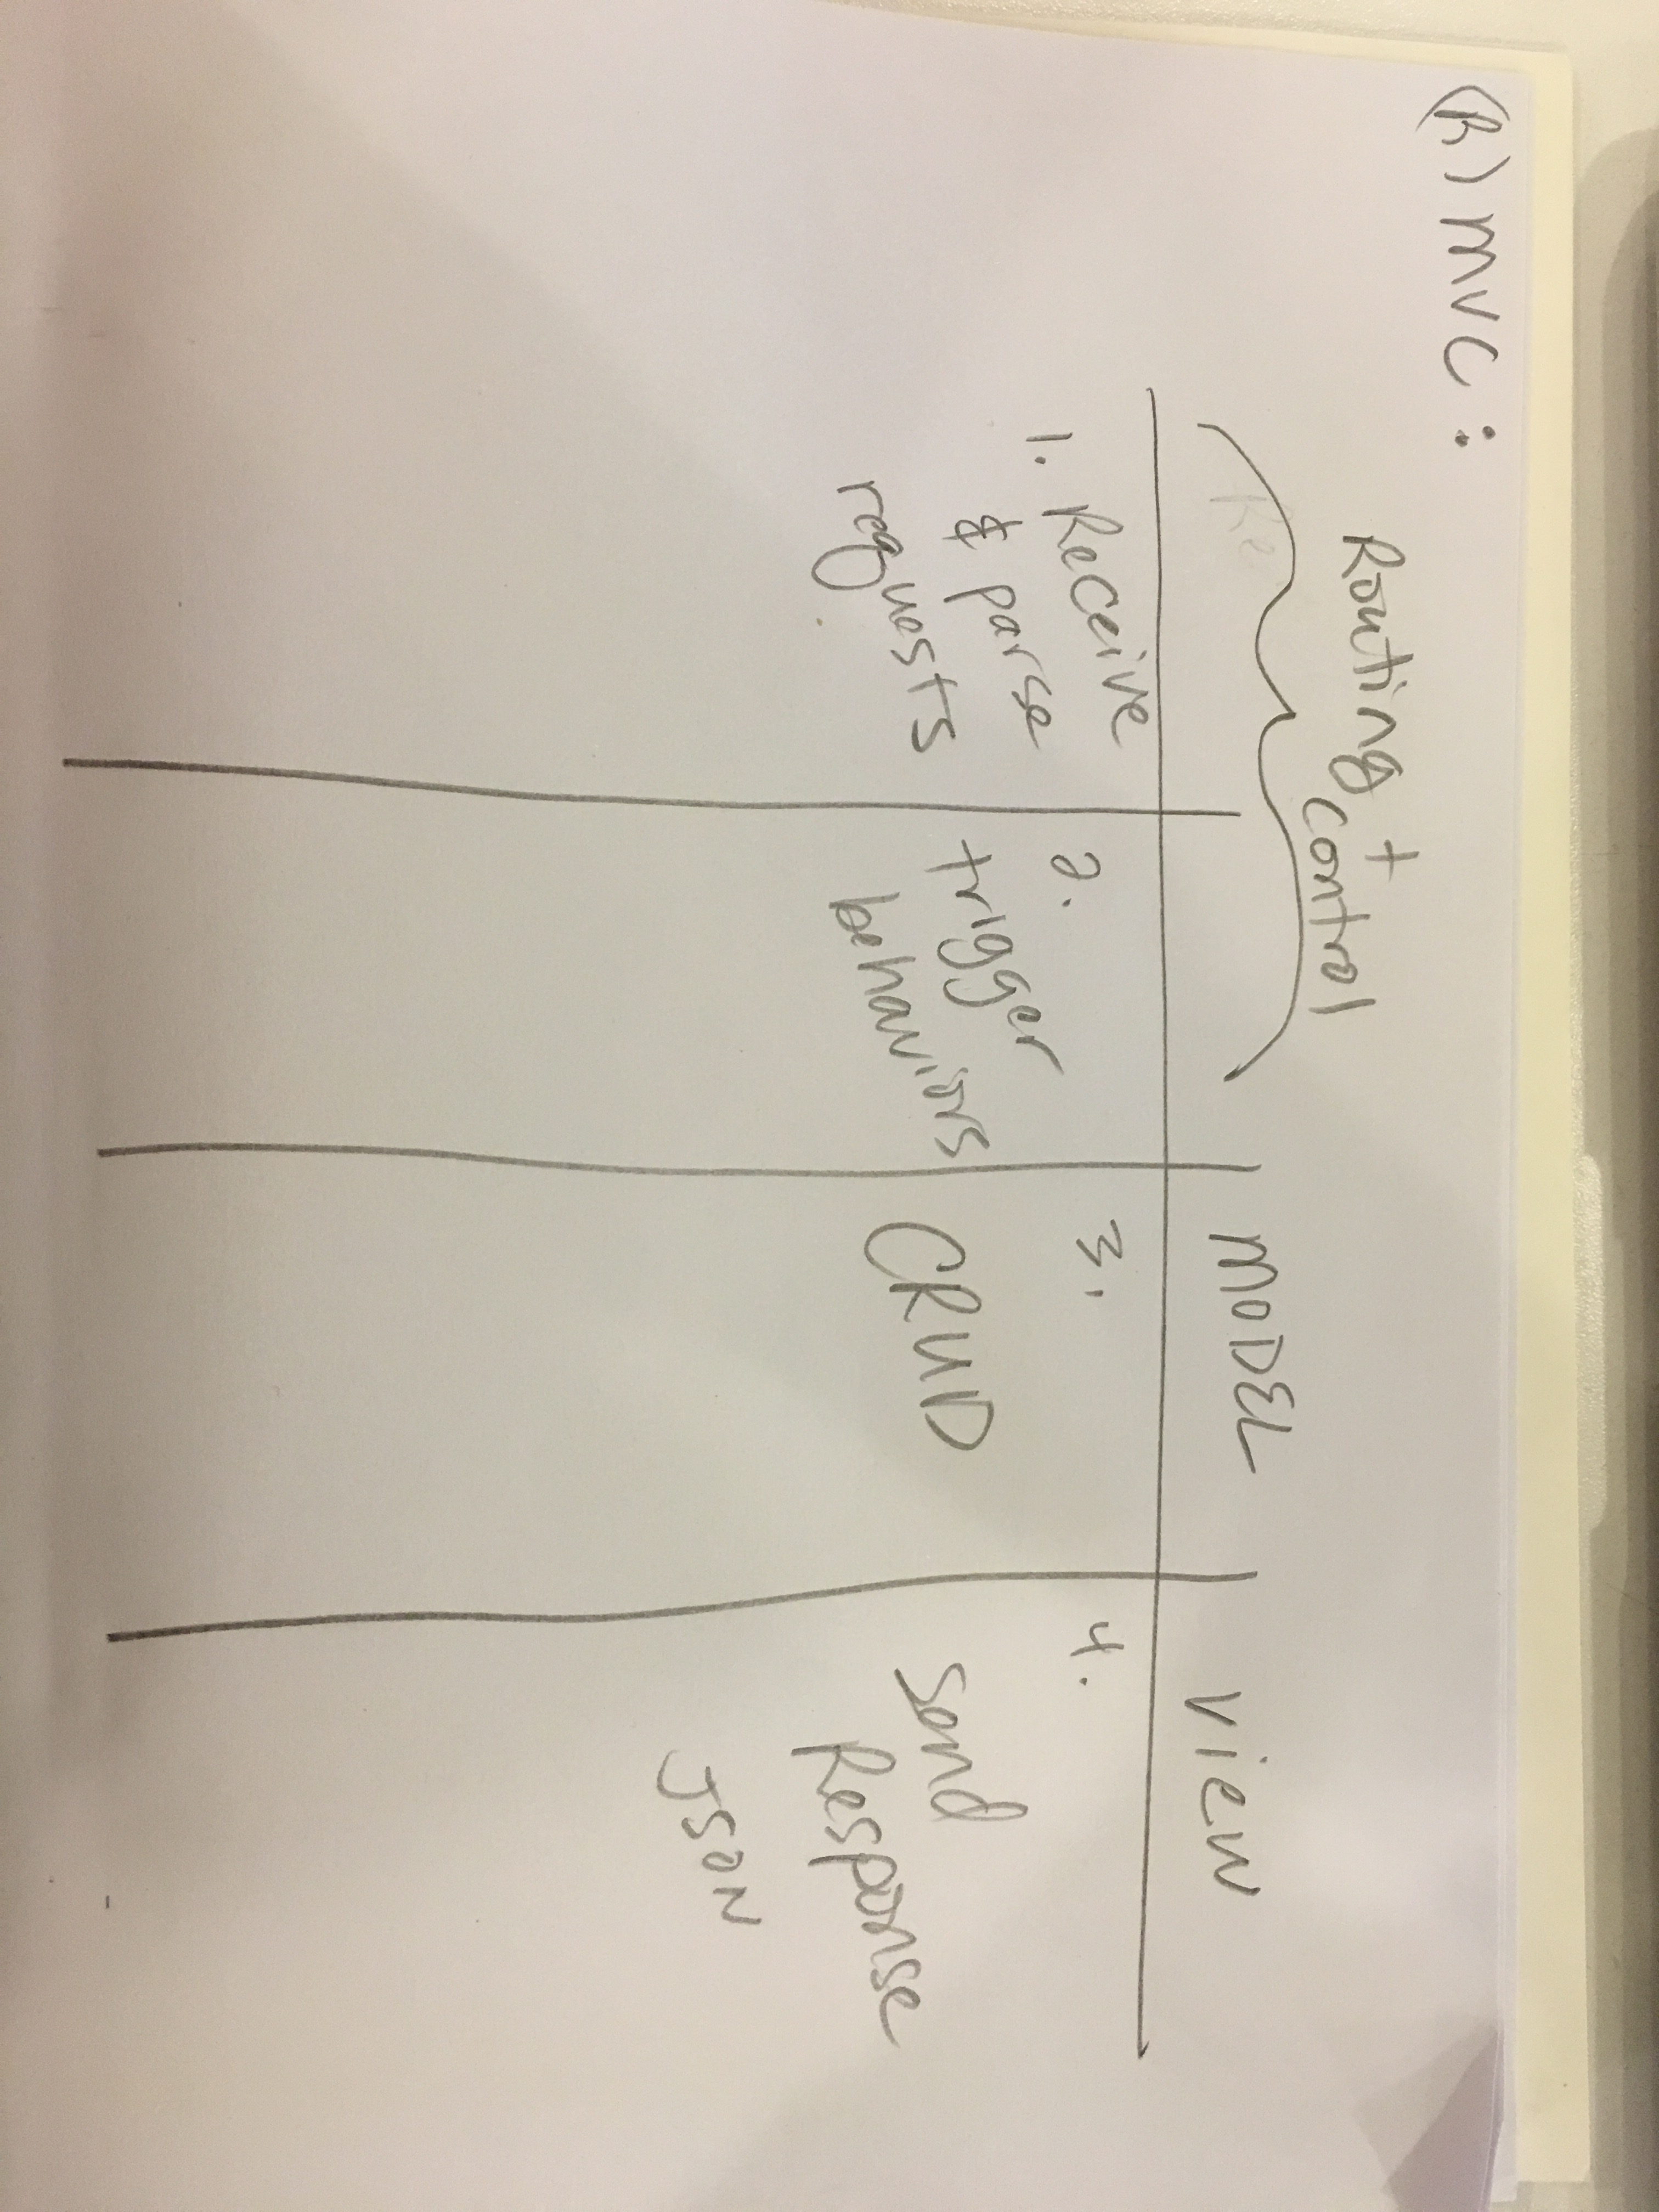 (R) MVC:
Routing + Control
MODEL
View
1. Receive
& parse
requests
2.
trigger
behaviors
3.
CRUD
4.
Send
Response
JSON